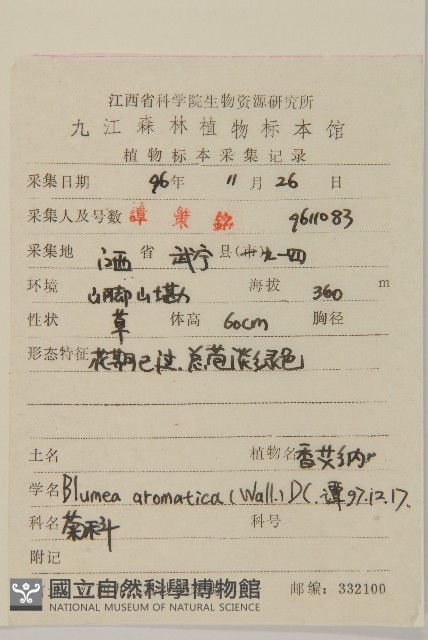 江西省科学院生物资源研究所
九江森林植物标本馆
植物标本采集记录
采集日期 96年 11月 26日
采集人及号数 譚策銘 9611083
采集地 江西省 武宁县(市) 九一四
环境 山脚山堪 海拔 360 m
性状 草 体高 60cm 胸径
形态特征 花期已过.总苞淡绿色
土名 植物名 香艾纳
学名 Blumea aromatica (Wall.) DC. 谭97.12.17.
科名 菊科 科号
附记
邮编: 332100
國立自然科學博物館
NATIONAL MUSEUM OF NATURAL SCIENCE